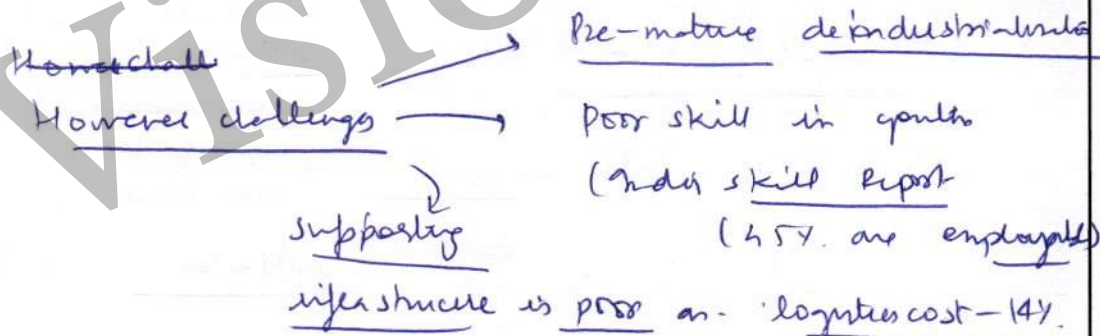 Pre-mature deindustrialisatio
However challenges → Poor skill in youth
(India skill Report
(45%. are employable)
supporting
infrastructure is poor as logistics cost - 14%.
Vision